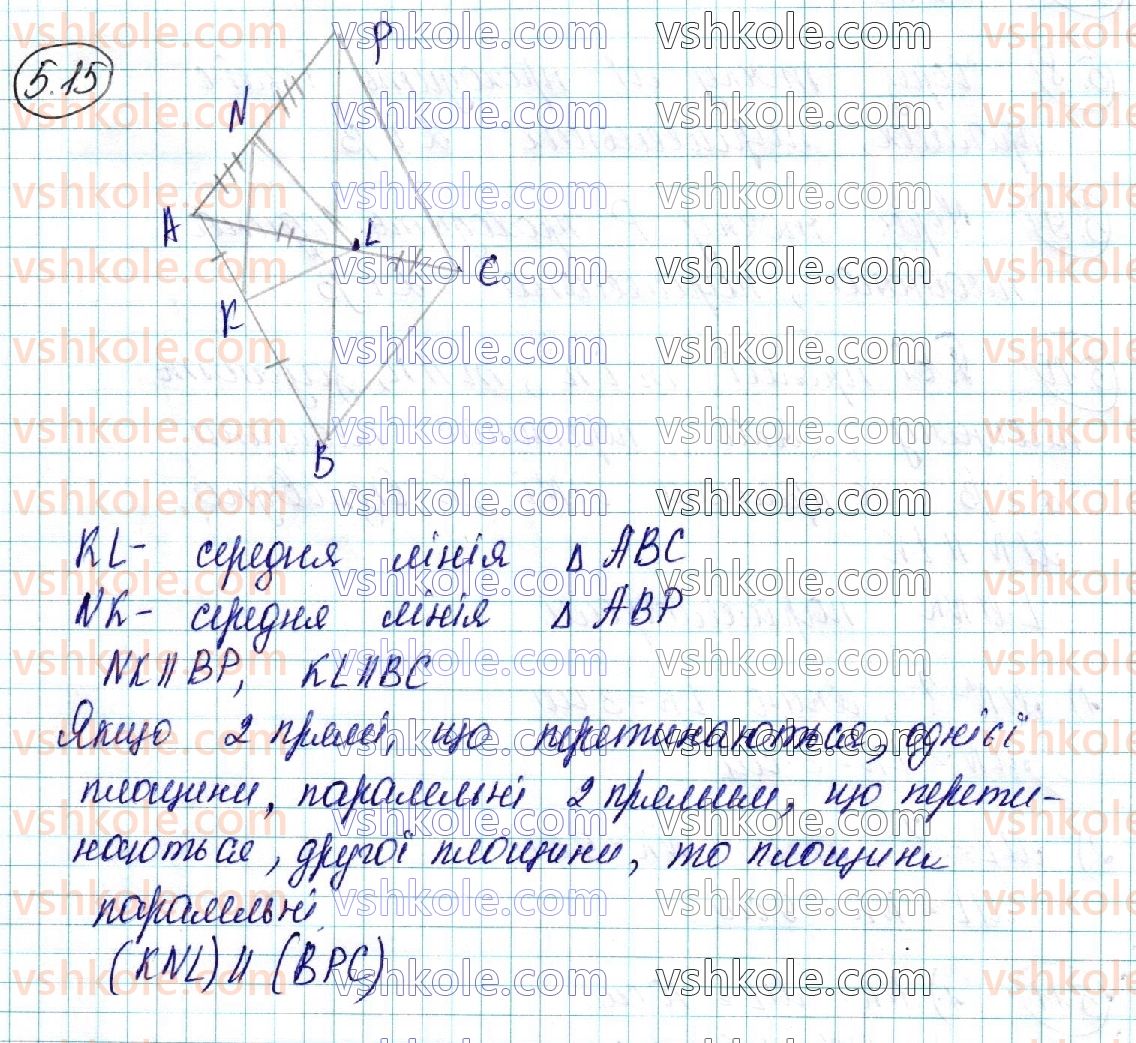 5.15
P
N
A
L
C
K
B
KL- середня лінія △ ABC
NK- середня лінія △ ABP
NK || BP, KL || BC
Якщо 2 прямі, що перетинаються, однієї
площини, паралельні 2 прямим, що перети-
наються, другої площини, то площини
паралельні
(KNL) || (BPC)
vshkole.com